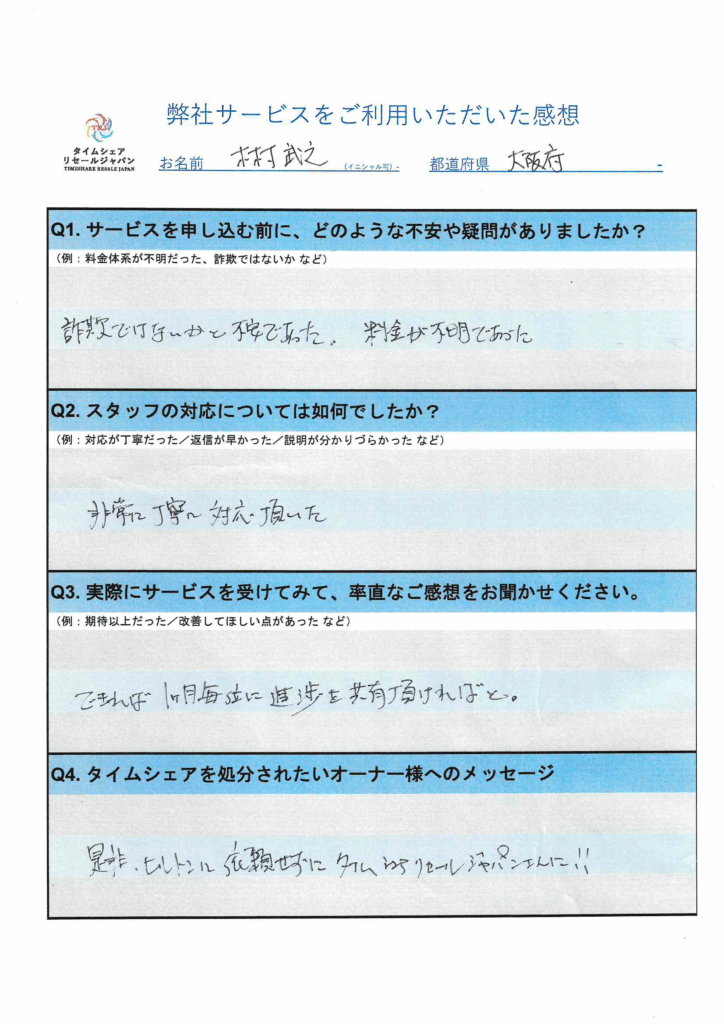 弊社サービスをご利用いただいた感想
TRJ
タイムシェア
リセールジャパン
TIMESHARE RESALE JAPAN
お名前 木村 武之 (イニシャル可) - 都道府県 大阪府 -
Q1. サービスを申し込む前に、どのような不安や疑問がありましたか？
（例：料金体系が不明だった、詐欺ではないか など）
詐欺ではないかと不安であった。 料金が不明であった
Q2. スタッフの対応については如何でしたか？
（例：対応が丁寧だった／返信が早かった／説明が分かりづらかった など）
非常に丁寧に対応頂いた
Q3. 実際にサービスを受けてみて、率直なご感想をお聞かせください。
（例：期待以上だった／改善してほしい点があった など）
できれば1ヶ月毎位に進渉を共有頂ければと。
Q4. タイムシェアを処分されたいオーナー様へのメッセージ
是非、ヒルトンに依頼せずにタイムシェアリセールジャパンさんに!!